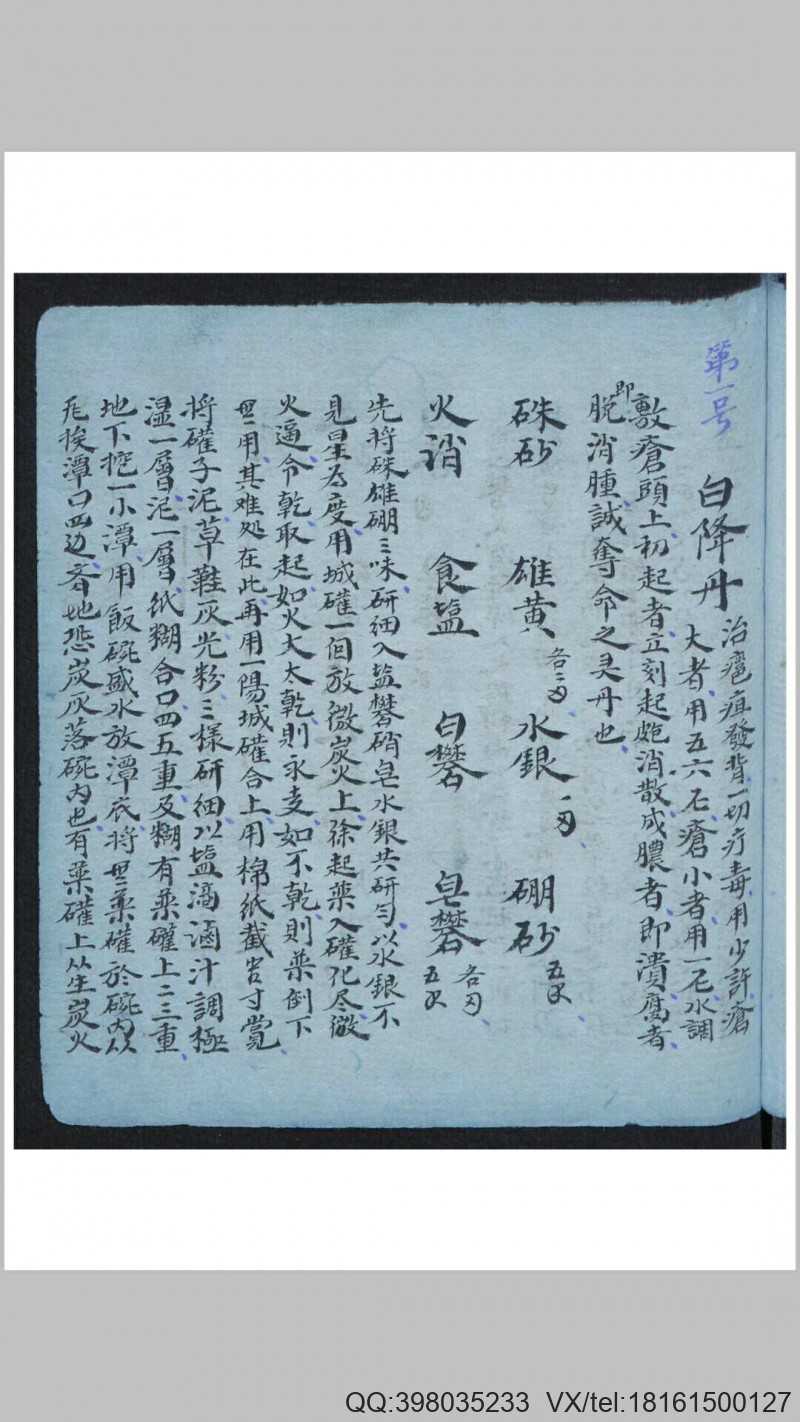 第一号
白降丹
治癰疽發背一切疔毒用少許瘡
大者用五六厘瘡小者用一厘水調
敷瘡頭上初起者立刻起皰消散成膿者即潰腐者
即
脫消腫誠奪命之灵丹也
硃砂 雄黃 各二匁 水銀 一匁 硼砂 五分
火硝 食盐 白礬 皂礬 各匁五分
先將硃雄硼三味研細入盐礬硝皂水銀共研匀以水銀不
見星為度用城礶一個放微炭火上徐起薬入礶化尽微
火逼令乾取起如火大太乾則汞走如不乾則薬倒下
無用其难処在此再用一陽城礶合上用棉紙截半寸寬
將礶子泥草鞋灰光粉三樣研細以盐滴滷汁調極
湿一層泥一層紙糊合口四五重及糊有薬礶上二三重
地下挖一小潭用飯碗盛水放潭底將無薬礶於碗內以
瓦挨潭口四边齐地恐炭灰落碗內也有薬礶上生炭火
QQ:398035233 VX/tel:18161500127